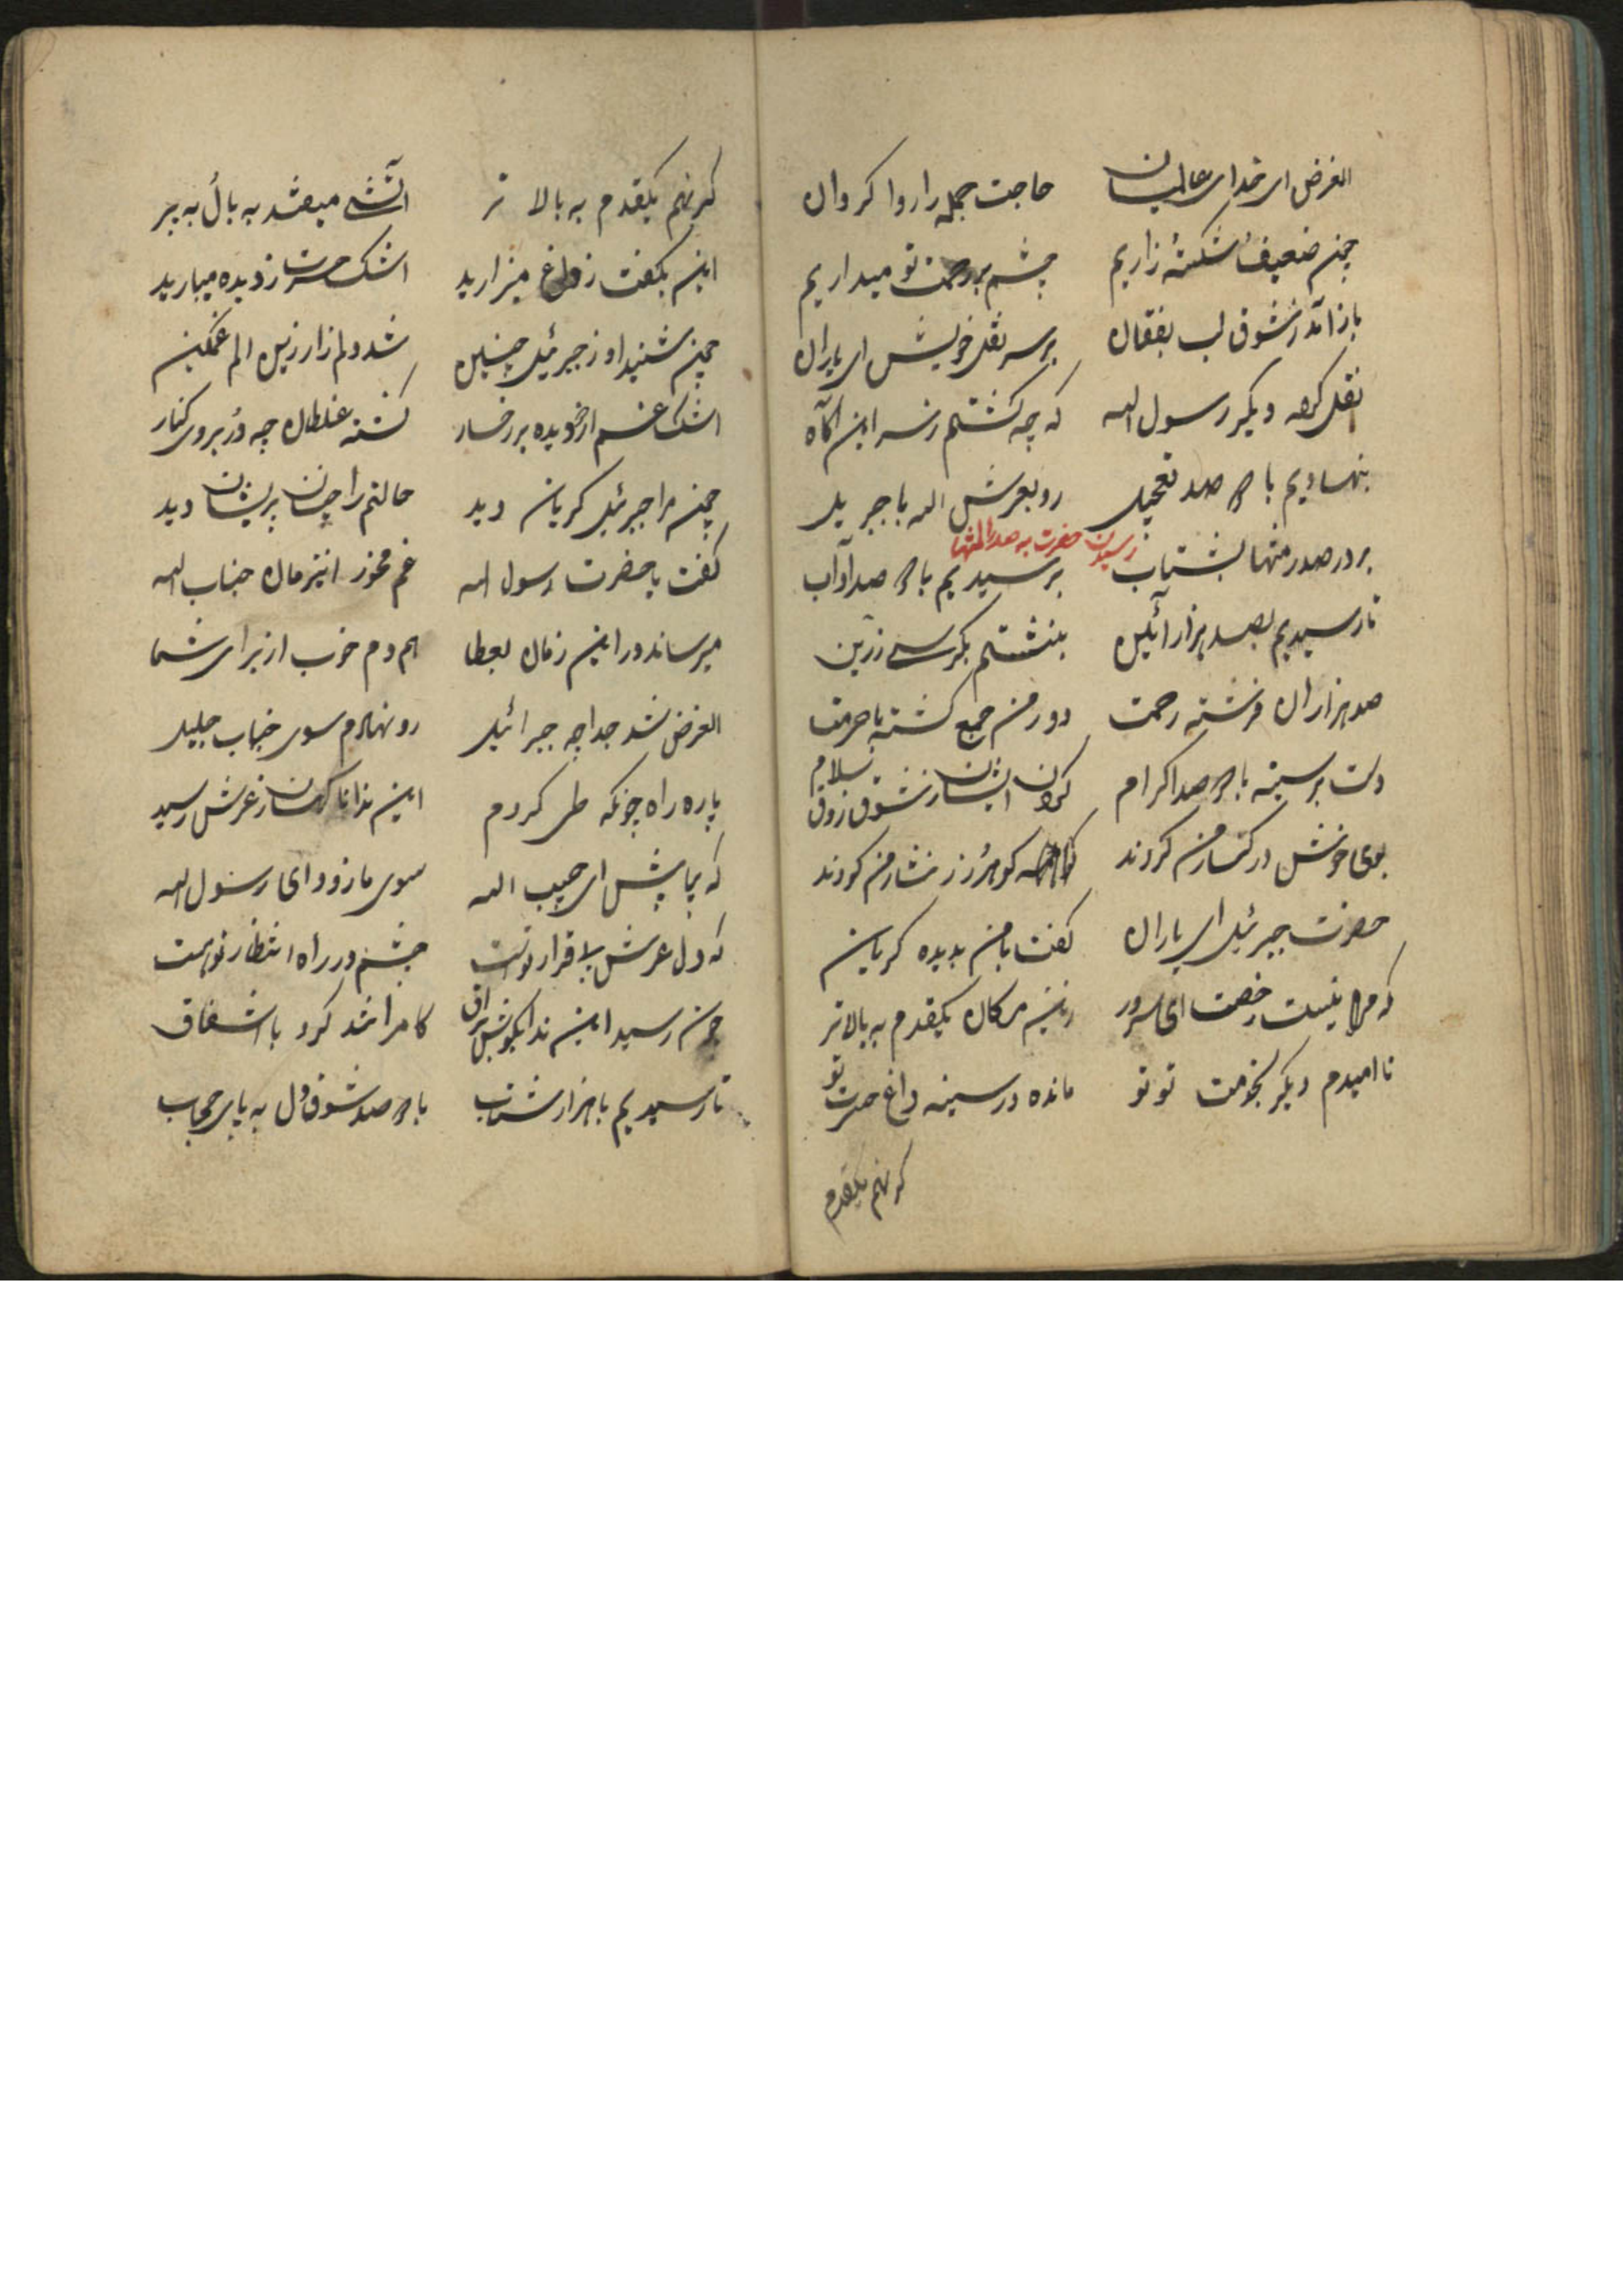 الغرض ای خدای عالمیان حاجت جمله را روا کردان
چون ضعیف شکستهٔ زاریم چشم بر رحمت تو میداریم
باز آمد ز شوق لب بفغان بر سر نقل خویش ای یاران
نقل کرد دیکر رسول الله که چه کشتم ز سر این آکاه
بنهادیم با صد تعجیل رو بعرش اله با جبریل
رسیدن حضرت به صدرالمنتها
بر در صدر منتها بشتاب بر سیدیم با صد آداب
تا رسیدیم بصد هزار آئین بنشستم بکرسی زرین
صد هزاران فرشته رحمت دور من جمع کشته با حرمت
دست بر سینه با صد اکرام کردن ایشان ز شوق ذوق سلام
بوی خوش در کنار من کردند کوهر زر نثار من کردند
حضرت جبرئیل ای یاران کفت با من بدیده کریان
که مرا نیست رخصت ای سرور زین مکان یکقدم به بالاتر
نا امیدم دیکر بخدمت تو تو مانده در سینه داغ حسرت تو
کر نهم یکقدم
کر نهم یکقدم به بالا تر آتشی میفتد به بال به پر
این بکفت ز داغ میزارید اشک حسرت ز دیده میبارید
چون شنید او ز جبرئیل چنین شد دلم زار زین الم غمکین
اشک غم از دیده بر رخسار کشته غلطان چه در بروی کنار
چون مرا جبرئیل کریان دید حالتم را چنان پریشان دید
کفت یا حضرت رسول اله غم مخور اینزمان جناب اله
میرساند در این زمان بعطا همدم خوب از برای شما
الغرض شد جدا چه جبرائیل رو نهادم سوی جناب جلیل
پاره راه چونکه طی کردم این ندا ناکهان ز عرش رسید
که بیا پیش ای حبیب اله سوی ما زود ای رسول اله
که دل عرش بیقرار تو است چشم در راه انتظار تو است
چون رسید این ندا بکوش براق کامرا تند کرد با اشفاق
تا رسیدیم با هزار شتاب با صد شوق دل به پای حجاب